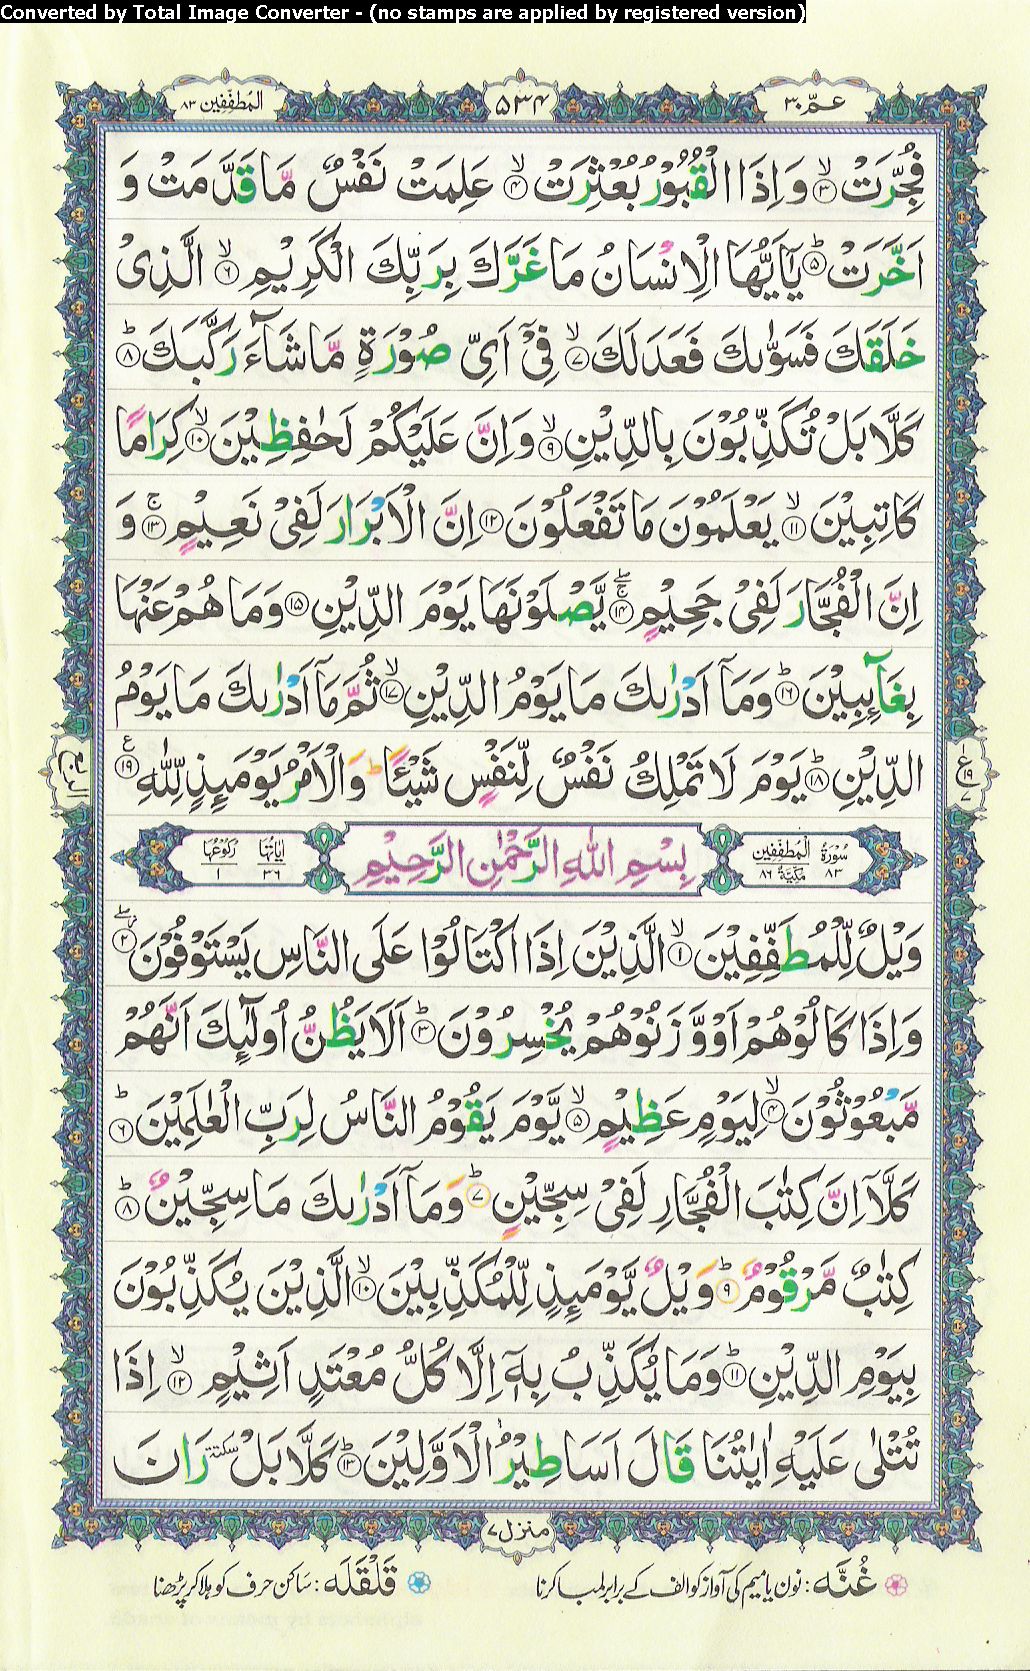 Converted by Total Image Converter - (no stamps are applied by registered version)
عمّ ٣٠
۵۳۴
المطفّفين ٨٣
فُجِّرَتْ ۙ‏﴿۳﴾ وَ اِذَا الْقُبُوْرُ بُعْثِرَتْ ۙ‏﴿۴﴾ عَلِمَتْ نَفْسٌ مَّا قَدَّمَتْ وَ
اَخَّرَتْ ؕ‏﴿۵﴾ يٰۤاَيُّهَا الْاِنْسَانُ مَا غَرَّكَ بِرَبِّكَ الْكَرِيْمِ ۙ‏﴿۶﴾ الَّذِىْ
خَلَقَكَ فَسَوّٰٮكَ فَعَدَلَكَ ۙ‏﴿۷﴾ فِىْۤ اَىِّ صُوْرَةٍ مَّا شَآءَ رَكَّبَكَ ؕ‏﴿۸﴾
كَلَّا بَلْ تُكَذِّبُوْنَ بِالدِّيْنِ ۙ‏﴿۹﴾ وَ اِنَّ عَلَيْكُمْ لَحٰفِظِيْنَ ۙ‏﴿۱۰﴾ كِرَامًا
كَاتِبِيْنَ ۙ‏﴿۱۱﴾ يَعْلَمُوْنَ مَا تَفْعَلُوْنَ ‏﴿۱۲﴾ اِنَّ الْاَبْرَارَ لَفِىْ نَعِيْمٍ ۚ‏﴿۱۳﴾ وَ
اِنَّ الْفُجَّارَ لَفِىْ جَحِيْمٍ ۚۖ‏﴿۱۴﴾ يَّصْلَوْنَهَا يَوْمَ الدِّيْنِ ‏﴿۱۵﴾ وَمَا هُمْ عَنْهَا
بِغَآٮِٕبِيْنَ ؕ‏﴿۱۶﴾ وَمَاۤ اَدْرٰٮكَ مَا يَوْمُ الدِّيْنِ ۙ‏﴿۱۷﴾ ثُمَّ مَاۤ اَدْرٰٮكَ مَا يَوْمُ
الدِّيْنِ ؕ‏﴿۱۸﴾ يَوْمَ لَا تَمْلِكُ نَفْسٌ لِّنَفْسٍ شَيْــًٔا ؕ وَالْاَمْرُ يَوْمَٮِٕذٍ لِّلّٰهِ ‏﴿۱۹﴾
ع
۱۹
۷
سُوْرَةُ الْمُطَفِّفِيْنَ
٨٣ مَكِّيَّةٌ ٨٦
بِسْمِ اللّٰهِ الرَّحْمٰنِ الرَّحِيْمِ
اٰيَاتُهَا ٣٦
رُكُوْعُهَا ١
وَيْلٌ لِّلْمُطَفِّفِيْنَ ۙ‏﴿۱﴾ الَّذِيْنَ اِذَا اكْتَالُوْا عَلَى النَّاسِ يَسْتَوْفُوْنَ ‏﴿۲﴾
وَاِذَا كَالُوْهُمْ اَوْ وَّزَنُوْهُمْ يُخْسِرُوْنَ ؕ‏﴿۳﴾ اَلَا يَظُنُّ اُولٰٓٮِٕكَ اَنَّهُمْ
مَّبْعُوْثُوْنَ ۙ‏﴿۴﴾ لِيَوْمٍ عَظِيْمٍ ۙ‏﴿۵﴾ يَّوْمَ يَقُوْمُ النَّاسُ لِرَبِّ الْعٰلَمِيْنَ ؕ‏﴿۶﴾
كَلَّاۤ اِنَّ كِتٰبَ الْفُجَّارِ لَفِىْ سِجِّيْنٍ ؕ‏﴿۷﴾ وَمَاۤ اَدْرٰٮكَ مَا سِجِّيْنٌ ؕ‏﴿۸﴾
كِتٰبٌ مَّرْقُوْمٌ ؕ‏﴿۹﴾ وَيْلٌ يَّوْمَٮِٕذٍ لِّلْمُكَذِّبِيْنَ ۙ‏﴿۱۰﴾ الَّذِيْنَ يُكَذِّبُوْنَ
بِيَوْمِ الدِّيْنِ ؕ‏﴿۱۱﴾ وَمَا يُكَذِّبُ بِهٖۤ اِلَّا كُلُّ مُعْتَدٍ اَثِيْمٍ ۙ‏﴿۱۲﴾ اِذَا
تُتْلٰى عَلَيْهِ اٰيٰتُنَا قَالَ اَسَاطِيْرُ الْاَوَّلِيْنَ ؕ‏﴿۱۳﴾ كَلَّا بَلْ سكتة رَانَ
منزل ٧
غُنَّه : نون یا میم کی آواز کو الف کے برابر لمبا کرنا
قَلْقَلَه : ساکن حرف کو ہلا کر پڑھنا